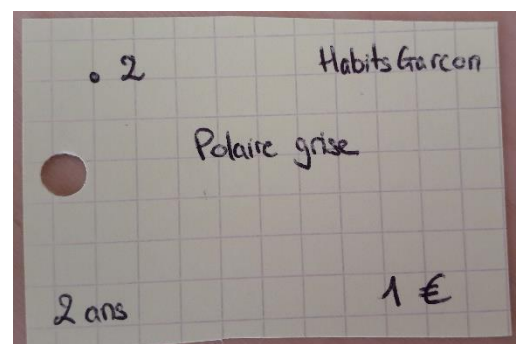 . 2 Habits Garcon
Polaire grise
2 ans 1 €